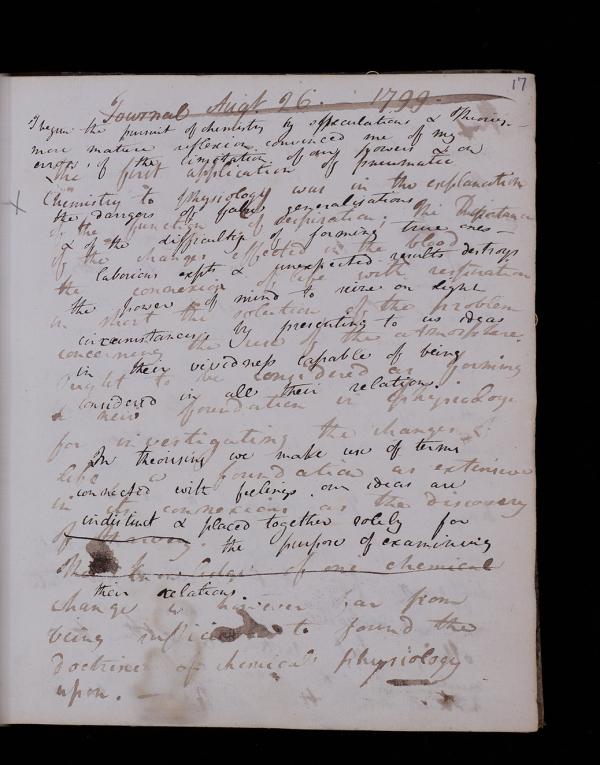 17
Journal Augt. 26. 1799.
I begun the pursuit of chemistry by speculations & theories –
more mature reflexion convinced me of my
errors, of the limitation of our powers & on
The first application of pneumatic
Chemistry to Physiology was in the explanation
the dangers of false generalisations
of the function of respiration; The Importance
& of the difficulties of forming true ones –
of the changes effected in the blood
laborious expts & unexpected results destroys
the connexion of life with respiration
the power of mind to seize on light
in short the solution of the problem
circumstances by presenting to us ideas
concerning the use of the atmosphere.
in their vividness capable of being
ought to be considered as forming
considered in all their relations.
a new foundation in physiology
for investigating the changes
In theorising we make use of terms
life a foundation as extensive
connected with feelings. our ideas are
in its connexions as the discovery
indistinct & placed together solely for
of Harvey.
the purpose of examining
The knowledge of one chemical
their relations.
change is however far from
being sufficient to found the
doctrines of chemical physiology
upon. –